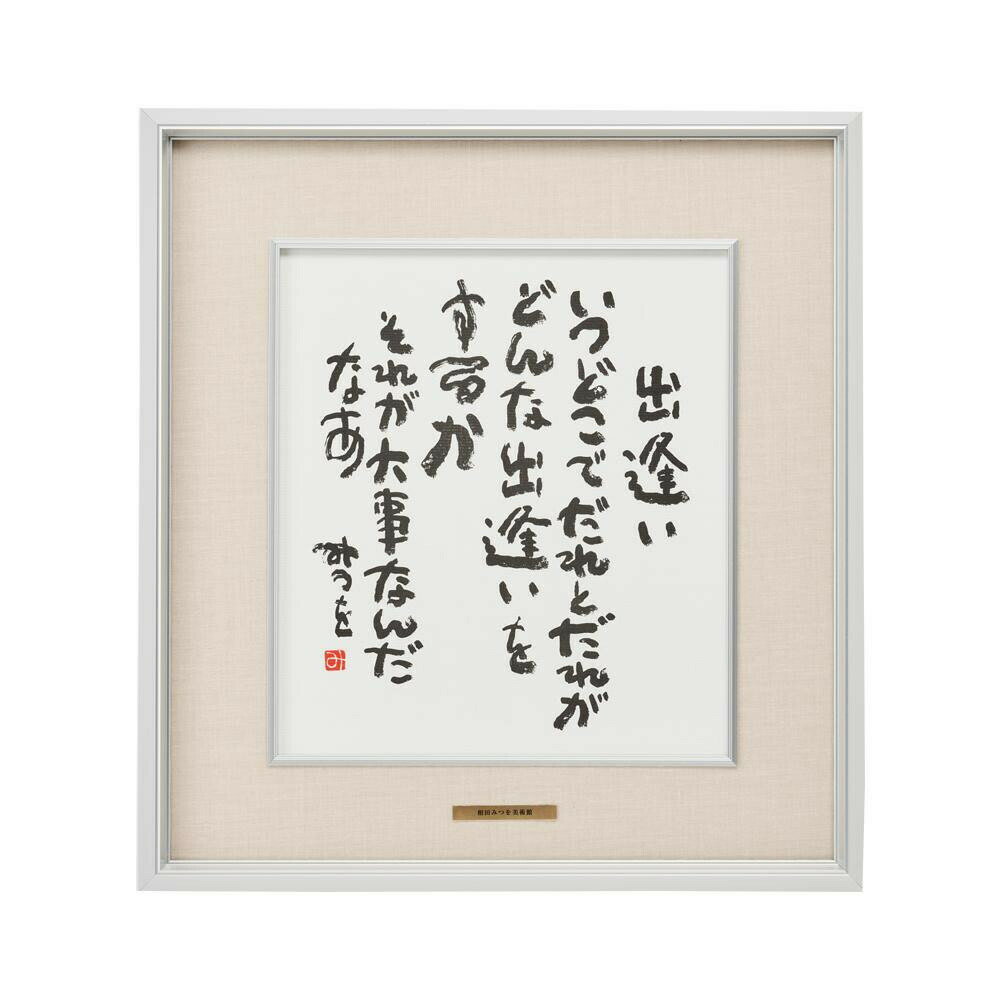 出逢い
いつどこでだれとだれが
どんな出逢いを
するか
それが大事なんだ
なあ
みつを
み
相田みつを美術館